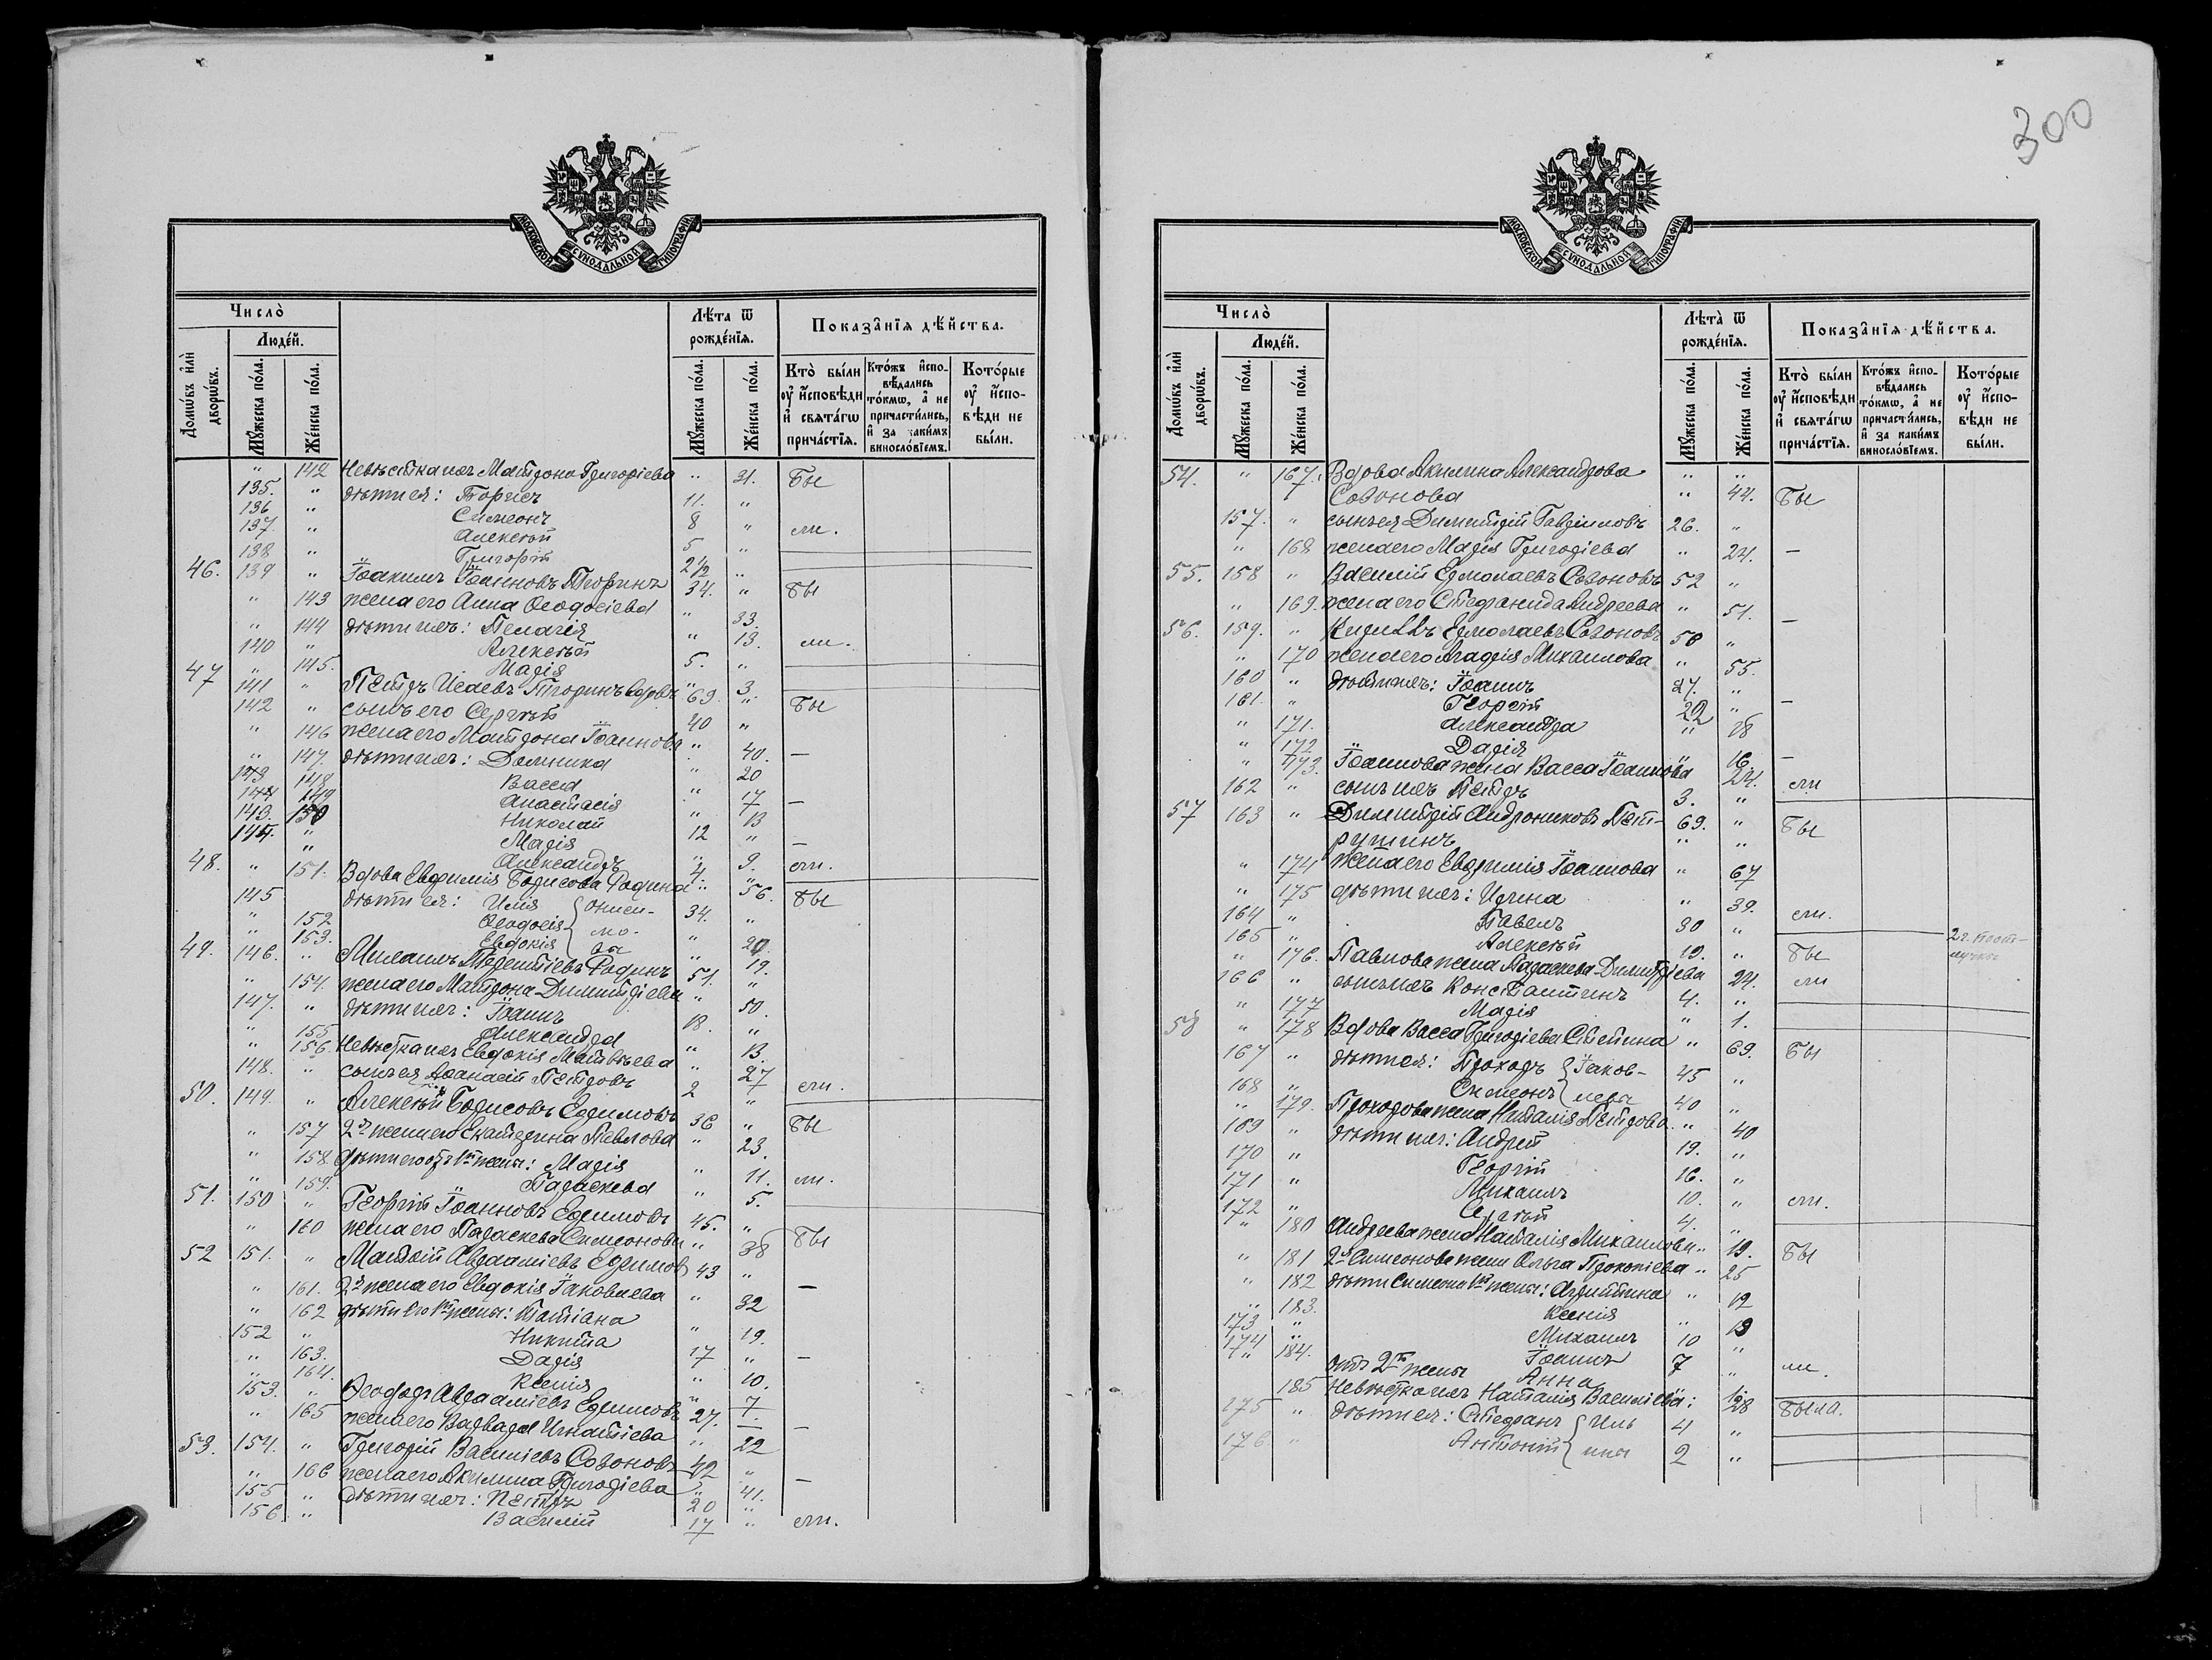 300
МОСКОВСКОЙ СѴНОДАЛЬНОЙ ТИПОГРАФІИ
Число̀
Лѣ́та ѿ рожде́нїѧ.
Показа̑нїѧ дѣ́йства.
Домѡ́въ и҆лѝ дворѡ́въ.
Люде́й.
Мꙋ́жеска по́ла.
Же́нска по́ла.
Мꙋ́жеска по́ла.
Же́нска по́ла.
Кто̀ бы́ли оу҆ и҆сповѣ́ди и҆ свѧта́гѡ прича́стїѧ.
Кто́жъ и҆сповѣ́дались то́кмѡ, а҆ не причасти́лись, и҆ за каки́мъ винносло́вїемъ.
Кото́рые оу҆ и҆сповѣ́ди не бы́ли.
" 142 Невѣстка ихъ Матрона Григоріева " 31. бы
135. " дѣти ея: Георгій 11. "
136 " Симеонъ 8 " ли.
137. " Алексѣй 5 "
138 " Григорій 2½ "
46. 139 " Іоакимъ Іоанновъ Тюринъ 34. " бы
" 143 жена его Анна Ѳеодосіева " 33.
" 144 дѣти ихъ: Пелагія " 13. ли.
140 " Алексѣй 5. "
" 145. Марія " 3.
47 141 " Петръ Исаевъ Тюринъ вдовъ 69. " бы
142 " сынъ его Сергѣй 40 "
" 146 жена его Матрона Іоаннова " 40. —
" 147. дѣти ихъ: Домника " 20
148 Васса " 17 —
149 Анастасія " 13
143. Николай 12 " —
150 Марія " 9. ли.
144. " Александръ 4. "
48. " 151. Вдова Евфимія Борисова Родина " 56. бы
145 дѣти ея: Илія Онисимовы 34. "
" 152 Ѳеодосія " 20.
" 153. Евдокія " 19.
49. 146. " Михаилъ Терентіевъ Родинъ 51. "
" 154. жена его Матрона Димитріева " 50.
147. " дѣти ихъ: Іоаннъ 18. "
" 155 Александра " 13.
" 156. Невѣстка ихъ Евдокія Матвѣева " 27
148. " сынъ ея Аѳанасій Петровъ 2 " ли.
50. 149. " Алексѣй Борисовъ Ефимовъ 36 " бы
" 157 2я жена его Екатерина Павлова " 23.
" 158 дѣти его отъ 1й жены: Марія " 11. ли.
" 159. Параскева " 5.
51. 150 " Георгій Іоанновъ Ефимовъ 45. "
" 160 жена его Параскева Симеонова " 38 бы
52 151. " Матѳій Авраамієвъ Ефимовъ 43 "
" 161. 2я жена его Евдокія Іаковлева " 32 —
" 162 дѣти его 1й жены: Татіана " 19.
152 " Никита 17 " —
" 163. Дарія " 10.
" 164. Ксенія " 7.
153. " Ѳеодоръ Авраамієвъ Ефимовъ 27. "
" 165 жена его Варвара Игнатіева " 22 —
53. 154. " Григорій Василіевъ Созоновъ 42 "
" 166 жена его Акилина Григоріева " 41. —
155 " дѣти ихъ: Петръ 20 "
156. " Василій 17 " ли.
Число̀
Лѣ́та ѿ рожде́нїѧ.
Показа̑нїѧ дѣ́йства.
Домѡ́въ и҆лѝ дворѡ́въ.
Люде́й.
Мꙋ́жеска по́ла.
Же́нска по́ла.
Мꙋ́жеска по́ла.
Же́нска по́ла.
Кто̀ бы́ли оу҆ и҆сповѣ́ди и҆ свѧта́гѡ прича́стїѧ.
Кто́жъ и҆сповѣ́дались то́кмѡ, а҆ не причасти́лись, и҆ за каки́мъ винносло́вїемъ.
Кото́рые оу҆ и҆сповѣ́ди не бы́ли.
54. " 167. Вдова Акилина Александрова " "
Созонова " 44. бы
157. " сынъ ея Димитрій 26. "
" 168 жена его Марія Григоріева " 24. —
55. 158 " Василій Ермолаевъ Созоновъ 52 "
" 169. жена его Стефанида Андреева " 51. —
56. 159. " Кириллъ Ермолаевъ Созоновъ 58 "
" 170 жена его Агафія Михаилова " 55.
160 " дѣти ихъ: Іоаннъ 27. "
161. " Георгій 22 " —
" 171. Александра " 18
" 172 Дарія " 16. —
" 173. Іоаннова жена Васса Іоаннова " 24. ли
162 " сынъ ихъ Петръ 3. "
57 163 " Димитрій Андрониковъ Пет- 69. " бы
рушинъ " "
" 174 жена его Евфимія Іоаннова " 67
" 175 дѣти ихъ: Ирина " 39.
164 " Павелъ 30 " ли.
165 " Алексѣй 19. " 2 г.
" 176. Павлова жена Параскева Димитріева " 24. бы
166 " сынъ ихъ Константинъ 4. " ли
" 177 Марія " 1.
58 " 178 Вдова Васса Григоріева Стешина " 69. бы
167 " дѣти ея: Прохоръ Іаковлевы 45 "
168 " Симеонъ 40 "
" 179. Прохорова жена Наталія Петрова " 40
169 " дѣти ихъ: Андрей 19. "
170 " Георгій 16. "
171 " Михаилъ 10. " ли.
172 " Сергѣй 4. "
" 180 Андреева жена Наталія Михаилова " 19. бы
" 181 2я Симеонова жена Ольга Прокопіева " 25
" 182 дѣти Симеона 1й жены: Агриппина " 12
" 183. Ксенія "
173 " Михаилъ 10 "
174 " Іоаннъ 7 " ли.
" 184. отъ 2й жены Анна
185 Невѣстка ихъ Наталія Василіева: 28 была.
175 " дѣти ея: Стефанъ Ильины 4 "
176 " Антоній 2 "